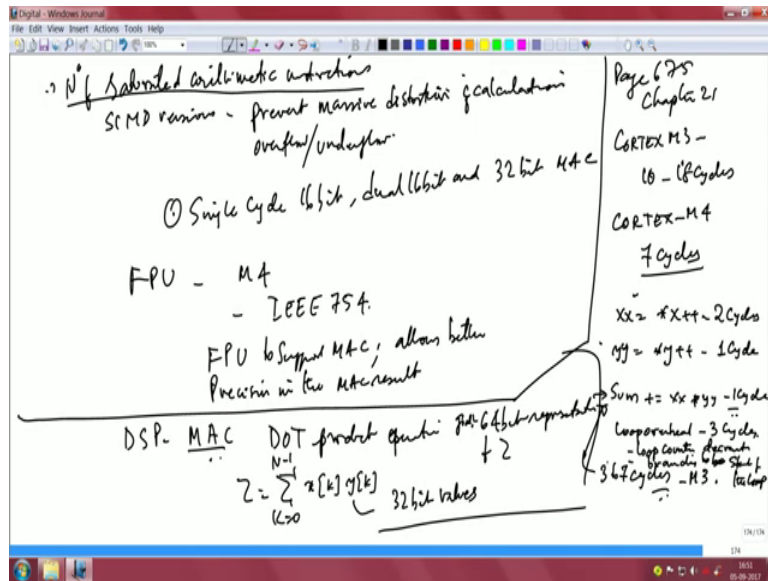 Digital - Windows Journal
File Edit View Insert Actions Tools Help
100%
N° of Saturated arithmetic instructions
SIMD versions - prevent massive distortion of calculations
overflow/underflow.
① Single cycle 16 bit, dual 16 bit and 32 bit MAC
FPU - M4
- IEEE 754.
FPU to support MAC; allows better
Precision in the MAC result
DSP - MAC DOT product equation 64 bit representation
of Z
N-1
Z = Σ x[k] y[k]
K=0
32 bit values
Page 675
Chapter 21
CORTEX M3 -
10 - 18 cycles
CORTEX-M4
7 cycles
xx = *x++ - 2 Cycles
yy = *y++ - 1 Cycle
Sum += xx * yy - 1 Cycle
Loop overhead - 3 Cycles
- loop counter decrements
branch to start of
the loop
3 6 7 cycles - M3.
174/174
174
16:51
05-09-2017